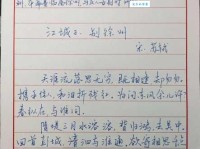 江城子·别徐州
宋·苏轼
天涯流落思无穷，既相逢，却匆匆。
携手佳人，和泪折残红。为问东风余几许？
春纵在，与谁同？
隋堤三月水溶溶，背归鸿，去吴中。
回首彭城，清泗与淮通。欲寄相思千点